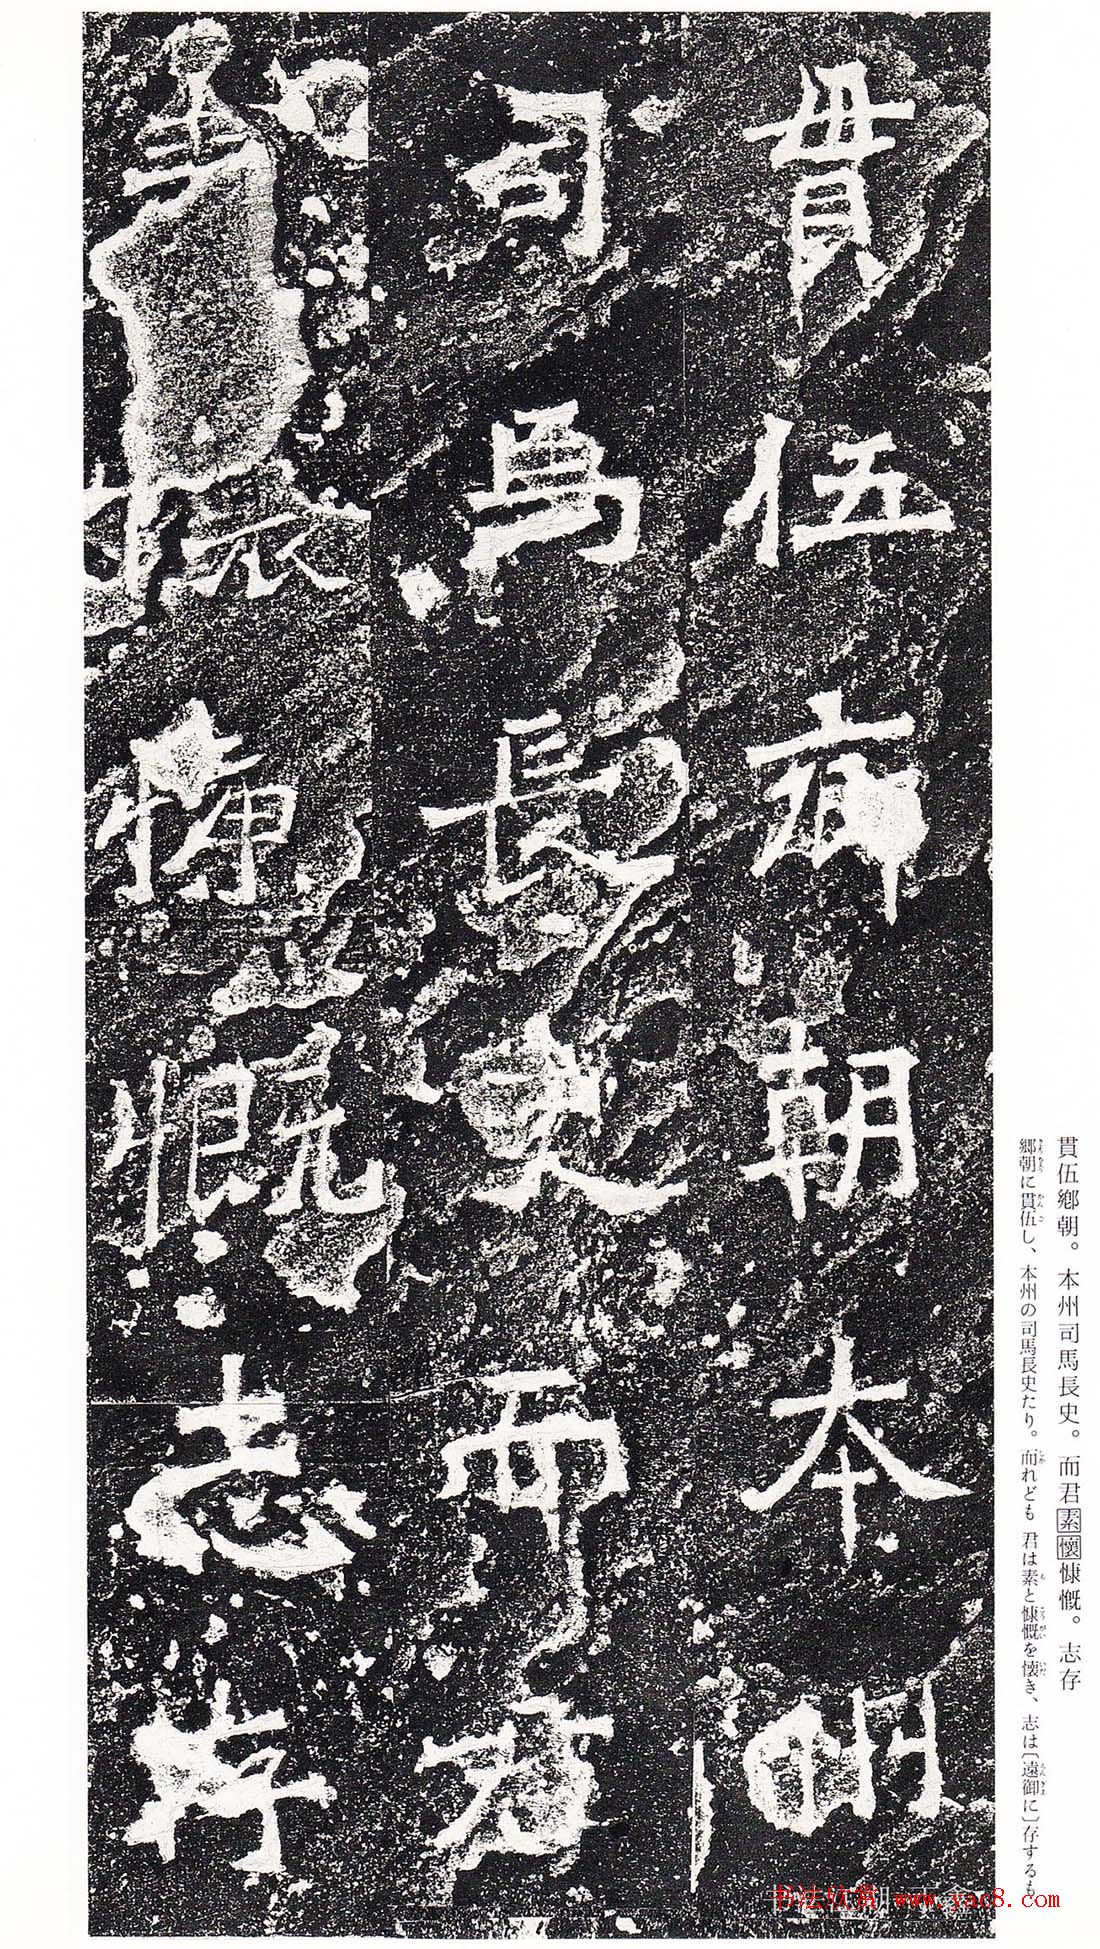 貫伍鄕朝。本州司馬長史。而君素懷慷慨。志存
郷朝に貫伍し、本州の司馬長史たり。而れども 君は素と慷慨を懐き、志は〔遠御に〕存するも
貫伍鄕朝本州
司馬長史而君
懷慷慨志存
书法欣赏 www.yac8.com